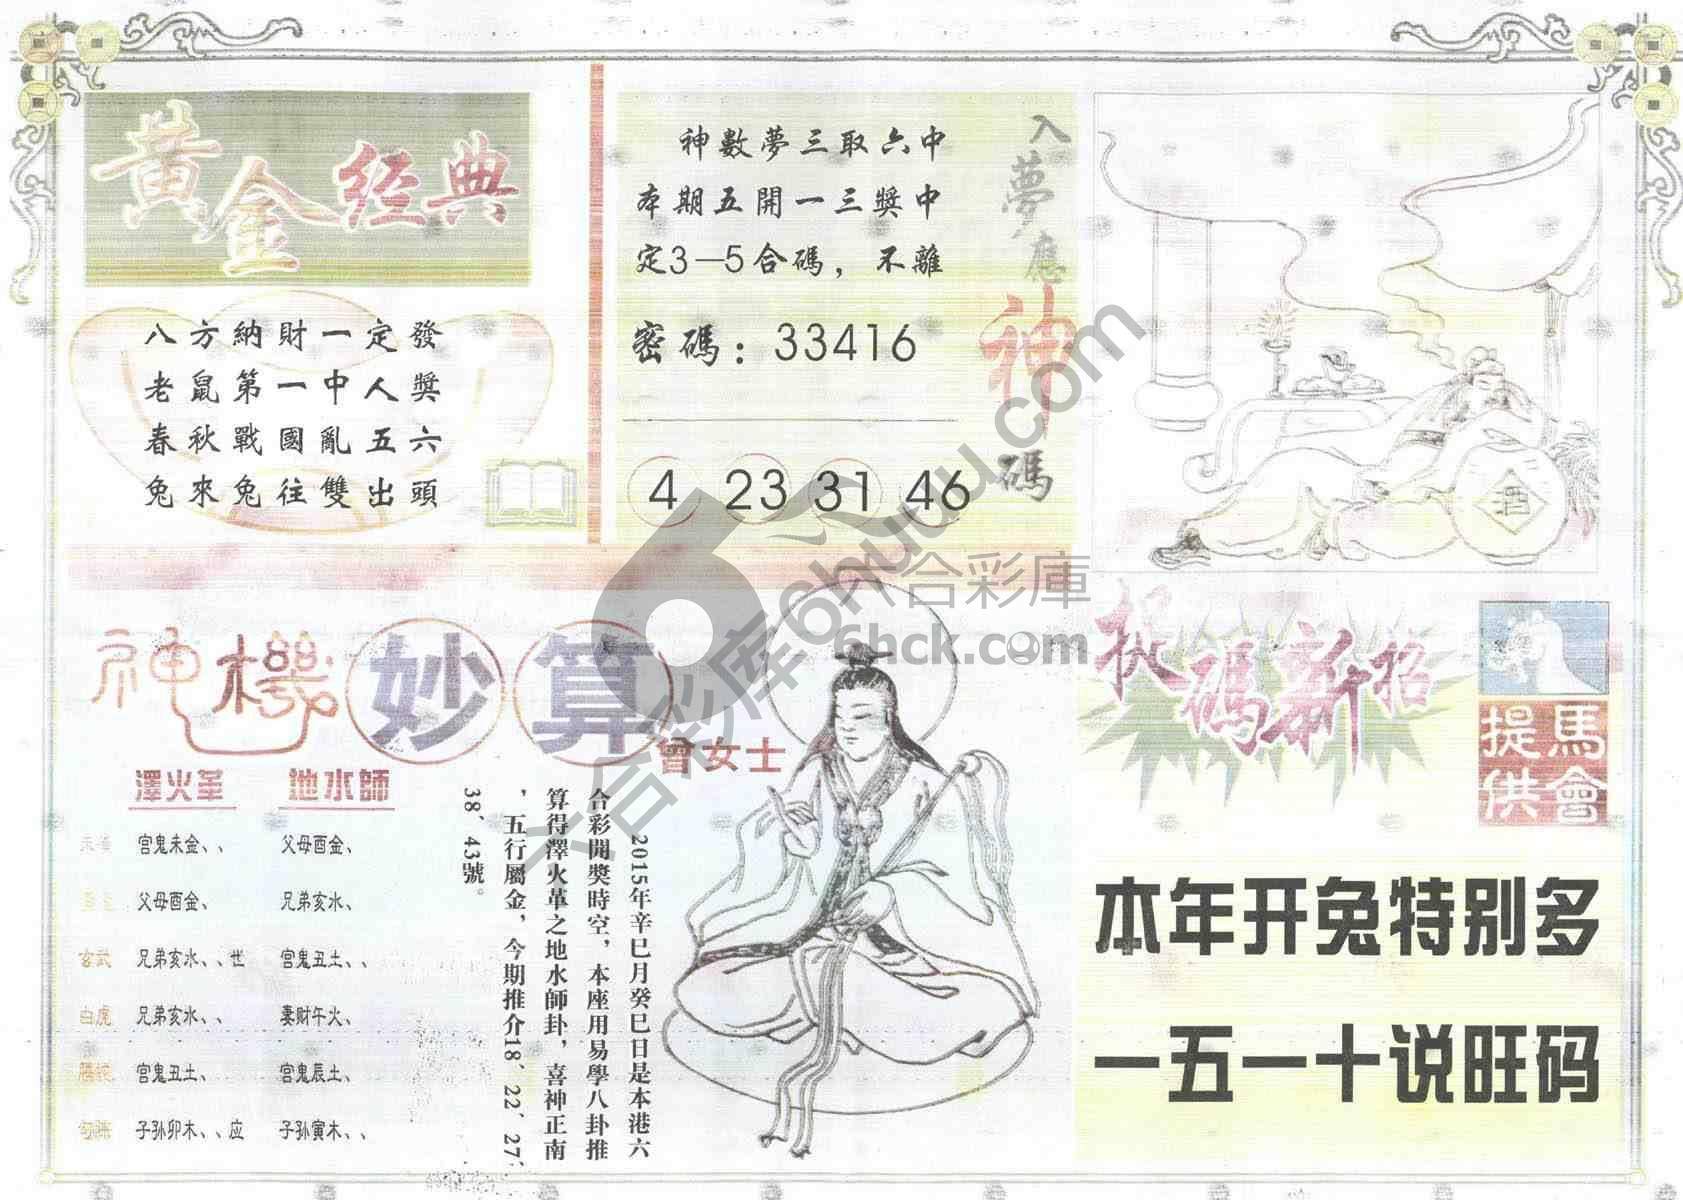 黄金经典
八方納財一定發
老鼠第一中人獎
春秋戰國亂五六
兔來兔往雙出頭
神數夢三取六中
本期五開一三獎中
定3—5合碼，不離
密碼：33416
4 23 31 46
入夢應神碼
酒
神機妙算
曾女士
澤火革 地水師
宫鬼未金、、 父母酉金、
父母酉金、 兄弟亥水、
玄武 兄弟亥水、、世 宫鬼丑土、、
白虎 兄弟亥水、、 妻财午火、
宫鬼丑土、 宫鬼辰土、
勾陈 子孙卯木、、应 子孙寅木、、
2015年辛巳月癸巳日是本港六
合彩開獎時空，本座用易學八卦推
算得澤火革之地水師卦，喜神正南
，五行屬金，今期推介18、22、27、
38、43號。
碼新招
馬會提供
本年开兔特别多
一五一十说旺码
六合彩库 6huu.com
六合彩庫
6hck.com